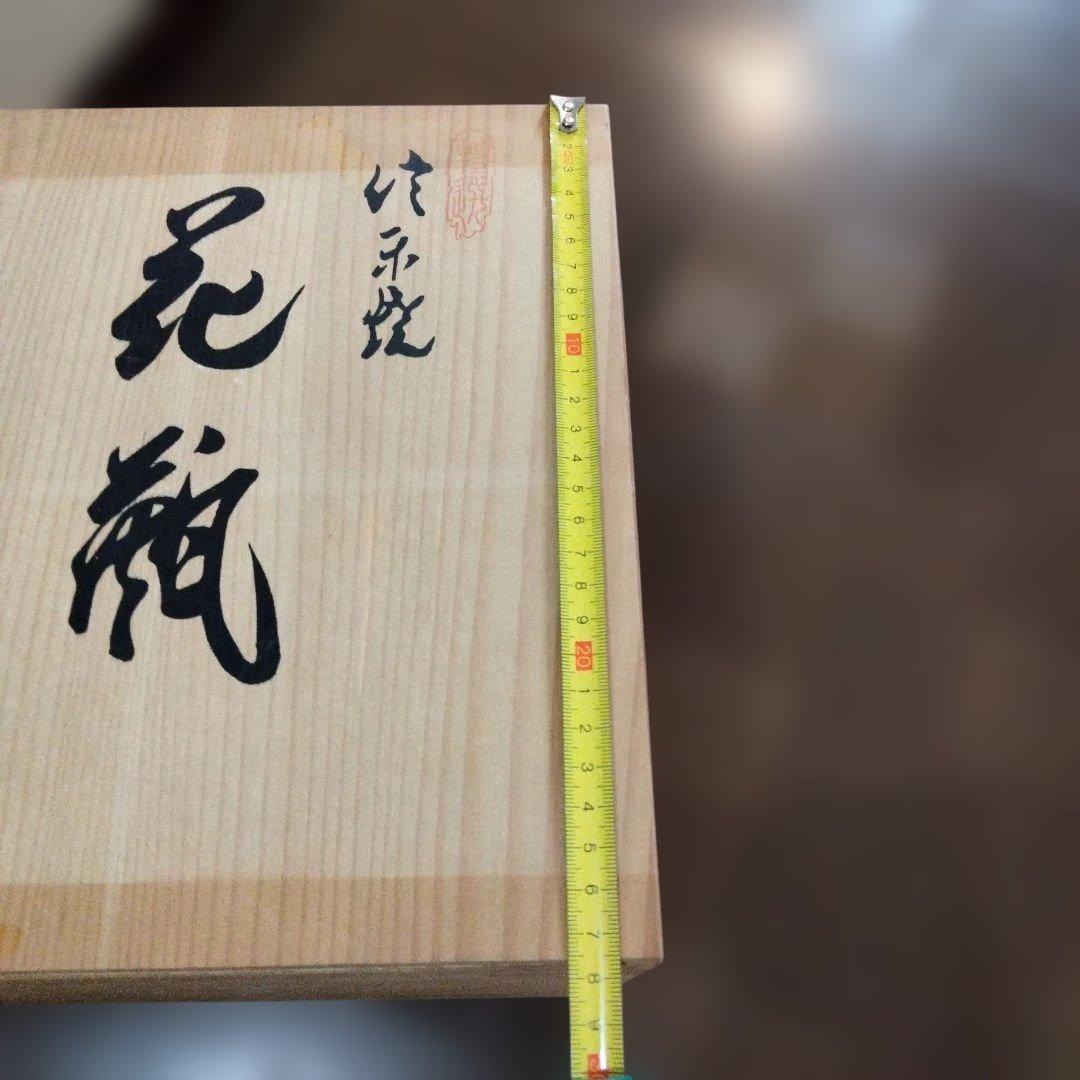 信楽焼
花瓶
2
3
4
5
6
7
8
9
10
1
2
3
4
5
6
7
8
9
20
1
2
3
4
5
6
7
8
9